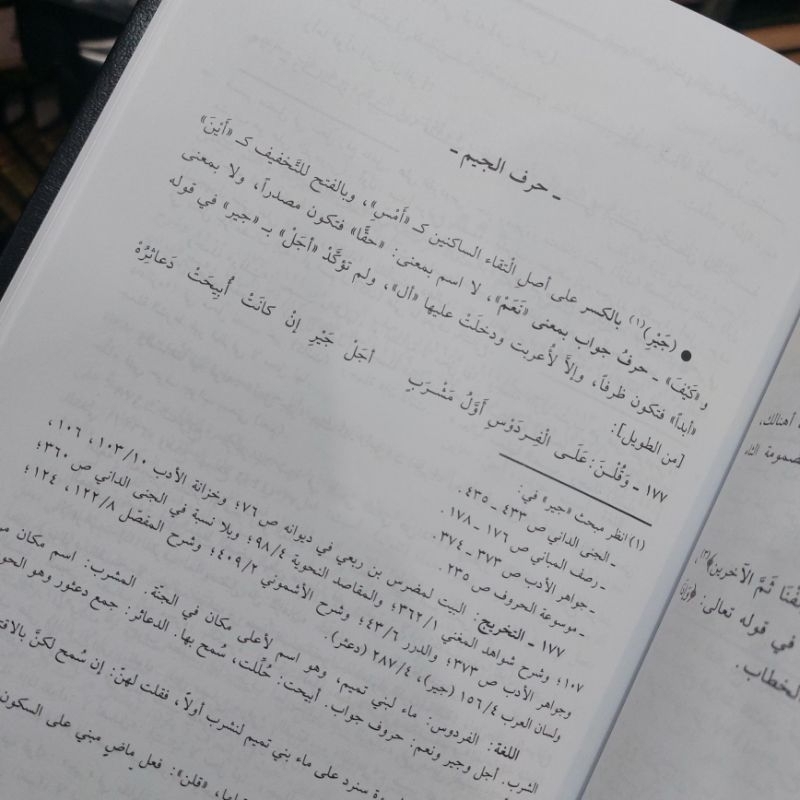 ـ حرف الجيم ـ
● (جَيْرِ)(١) بالكسر على أصلِ الْتقاء الساكنين كـ «أَمْسِ»، وبالفتح للتَّخفيف كـ «أَيْنَ»
و «كَيْفَ» ـ حرفُ جواب بمعنى «نَعَمْ»، لا اسم بمعنى: «حقًّا» فتكون مصدراً، ولا بمعنى
«أبداً» فتكون ظرفاً، وإلاَّ لأُعربت ودخلَتْ عليها «أل»، ولم تؤكَّدْ «أجَلْ» بـ «جير» في قوله
[من الطويل]:
١٧٧ ـ وَقُلْنَ: عَلَى الْفِرْدَوْسِ أَوَّلُ مَشْرَبِ أجَلْ جَيْرِ إنْ كانَتْ أُبِيحَتْ دَعاثِرُهْ
(١) انظر مبحث «جير» في:
ـ الجنى الداني ص ٤٣٣ ـ ٤٣٥.
ـ رصف المباني ص ١٧٦ ـ ١٧٨.
ـ جواهر الأدب ص ٣٧٣ ـ ٣٧٤.
ـ موسوعة الحروف ص ٢٣٥.
١٧٧ ـ التخريج: البيت لمضرس بن ربعي في ديوانه ص ٧٦؛ وخزانة الأدب ١٠٣/١٠، ١٠٦،
١٠٧؛ وشرح شواهد المغني ٣٦٢/١؛ والمقاصد النحوية ٩٨/٤؛ وبلا نسبة في الجنى الداني ص ٣٦٠؛
وجواهر الأدب ص ٣٧٣؛ والدرر ٤٣/٦؛ وشرح الأشموني ٤٠٩/٢؛ وشرح المفصّل ١٢٢/٨، ١٢٤؛
ولسان العرب ١٥٦/٤ (جير)، ٢٨٧/٤ (دعثر).
اللغة: الفردوس: ماء لبني تميم، وهو اسم لأعلى مكان في الجنّة. المشرب: اسم مكان من
الشرب. أجل وجير ونعم: حروف جواب. أبيحت: حُلِّلت، سُمح بها. الدعاثر: جمع دعثور وهو
سنرد على ماء بني تميم لنشرب أولاً، فقلت لهنّ: إن سُمح لكنَّ
«قلن»: فعل ماضٍ مبني على السكون
أهنالك،
ثُمَّ الآخرين﴾(٣)،
في قوله تعالى:
الخطاب.